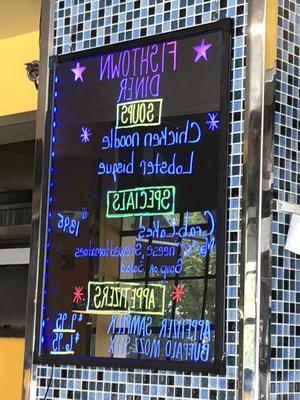 FISHTOWN
DINER
SOUPS
Chicken noodle
Lobster bisque
SPECIALS
Crab Cakes
1895
cheese, Stewed tomatoes
Soup or Salad
APPETIZERS
APPETIZER SAMPLER $9.95
BUFFALO MOZZ STIX $6.95